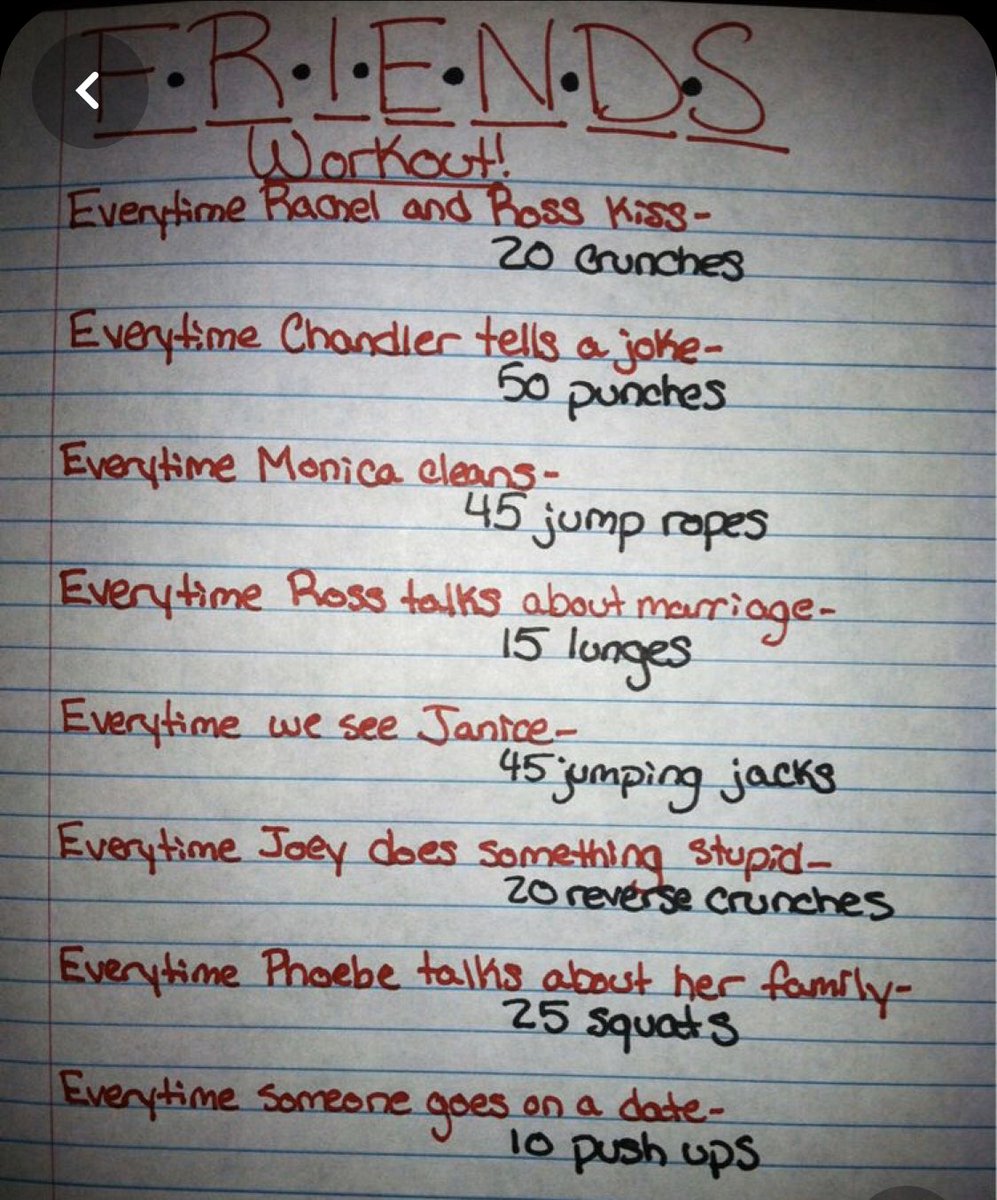 F•R•I•E•N•D•S
Workout!
Everytime Rachel and Ross kiss-
20 crunches
Everytime Chandler tells a joke-
50 punches
Everytime Monica cleans-
45 jump ropes
Everytime Ross talks about marriage-
15 lunges
Everytime we see Janice-
45 jumping jacks
Everytime Joey does something stupid-
20 reverse crunches
Everytime Phoebe talks about her family-
25 squats
Everytime someone goes on a date-
10 push ups